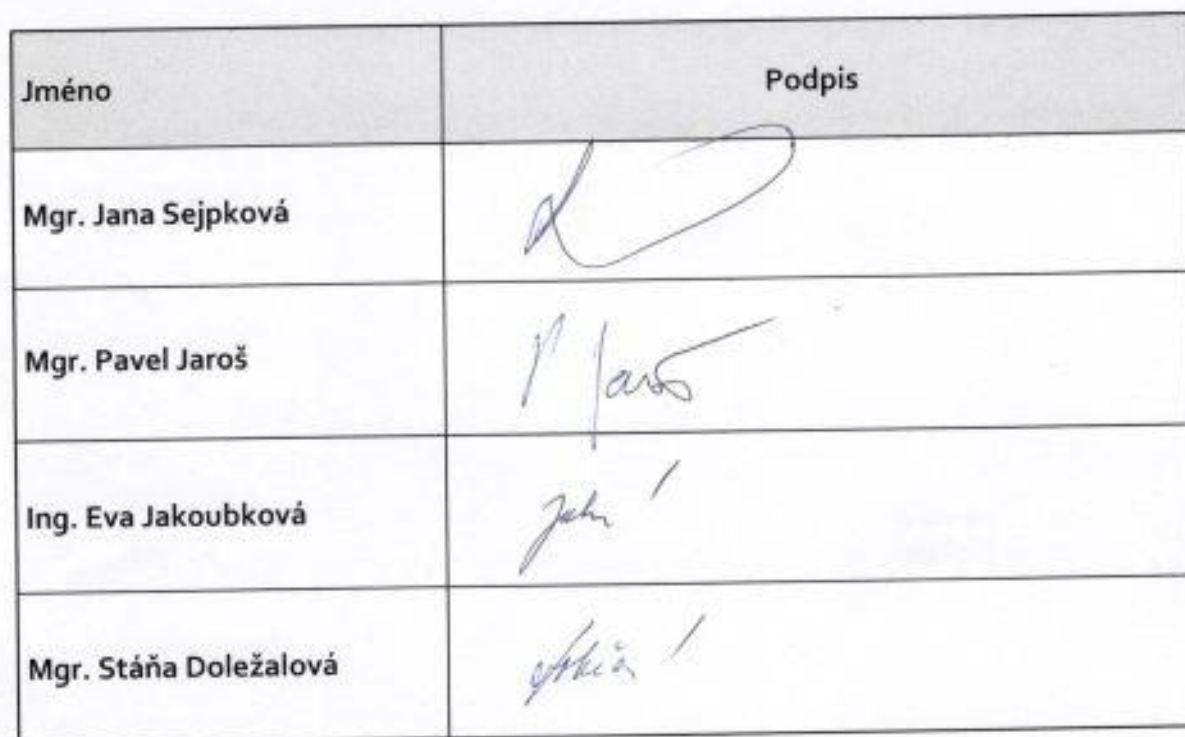 Jméno Podpis
Mgr. Jana Sejpková
Mgr. Pavel Jaroš
Ing. Eva Jakoubková
Mgr. Stáňa Doležalová